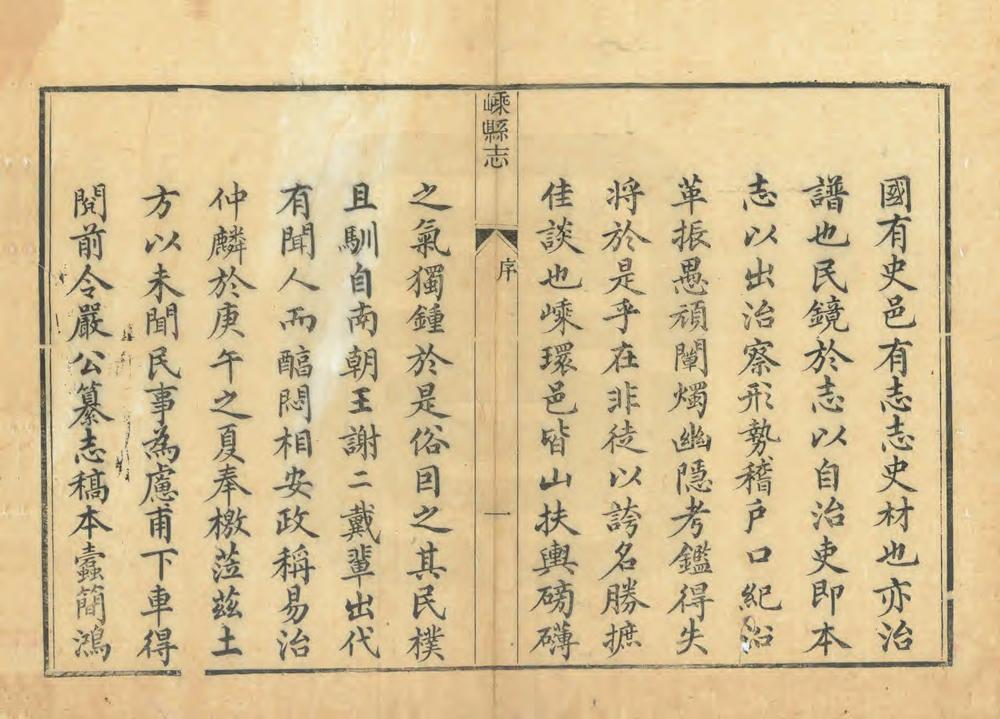 國有史邑有志志史材也亦治
譜也民鏡於志以自治吏即本
志以出治察形勢稽戶口紀沿
革振愚頑闡燭幽隱考鑑得失
將於是乎在非徒以誇名勝摭
佳談也嵊環邑皆山扶輿磅礴
嵊縣志
序
一
之氣獨鍾於是俗因之其民樸
且馴自南朝王謝二戴輩出代
有聞人而醖悶相安政稱易治
仲麟於庚午之夏奉檄蒞茲土
方以未聞民事為慮甫下車得
閱前令嚴公纂志稿本蠹簡鴻